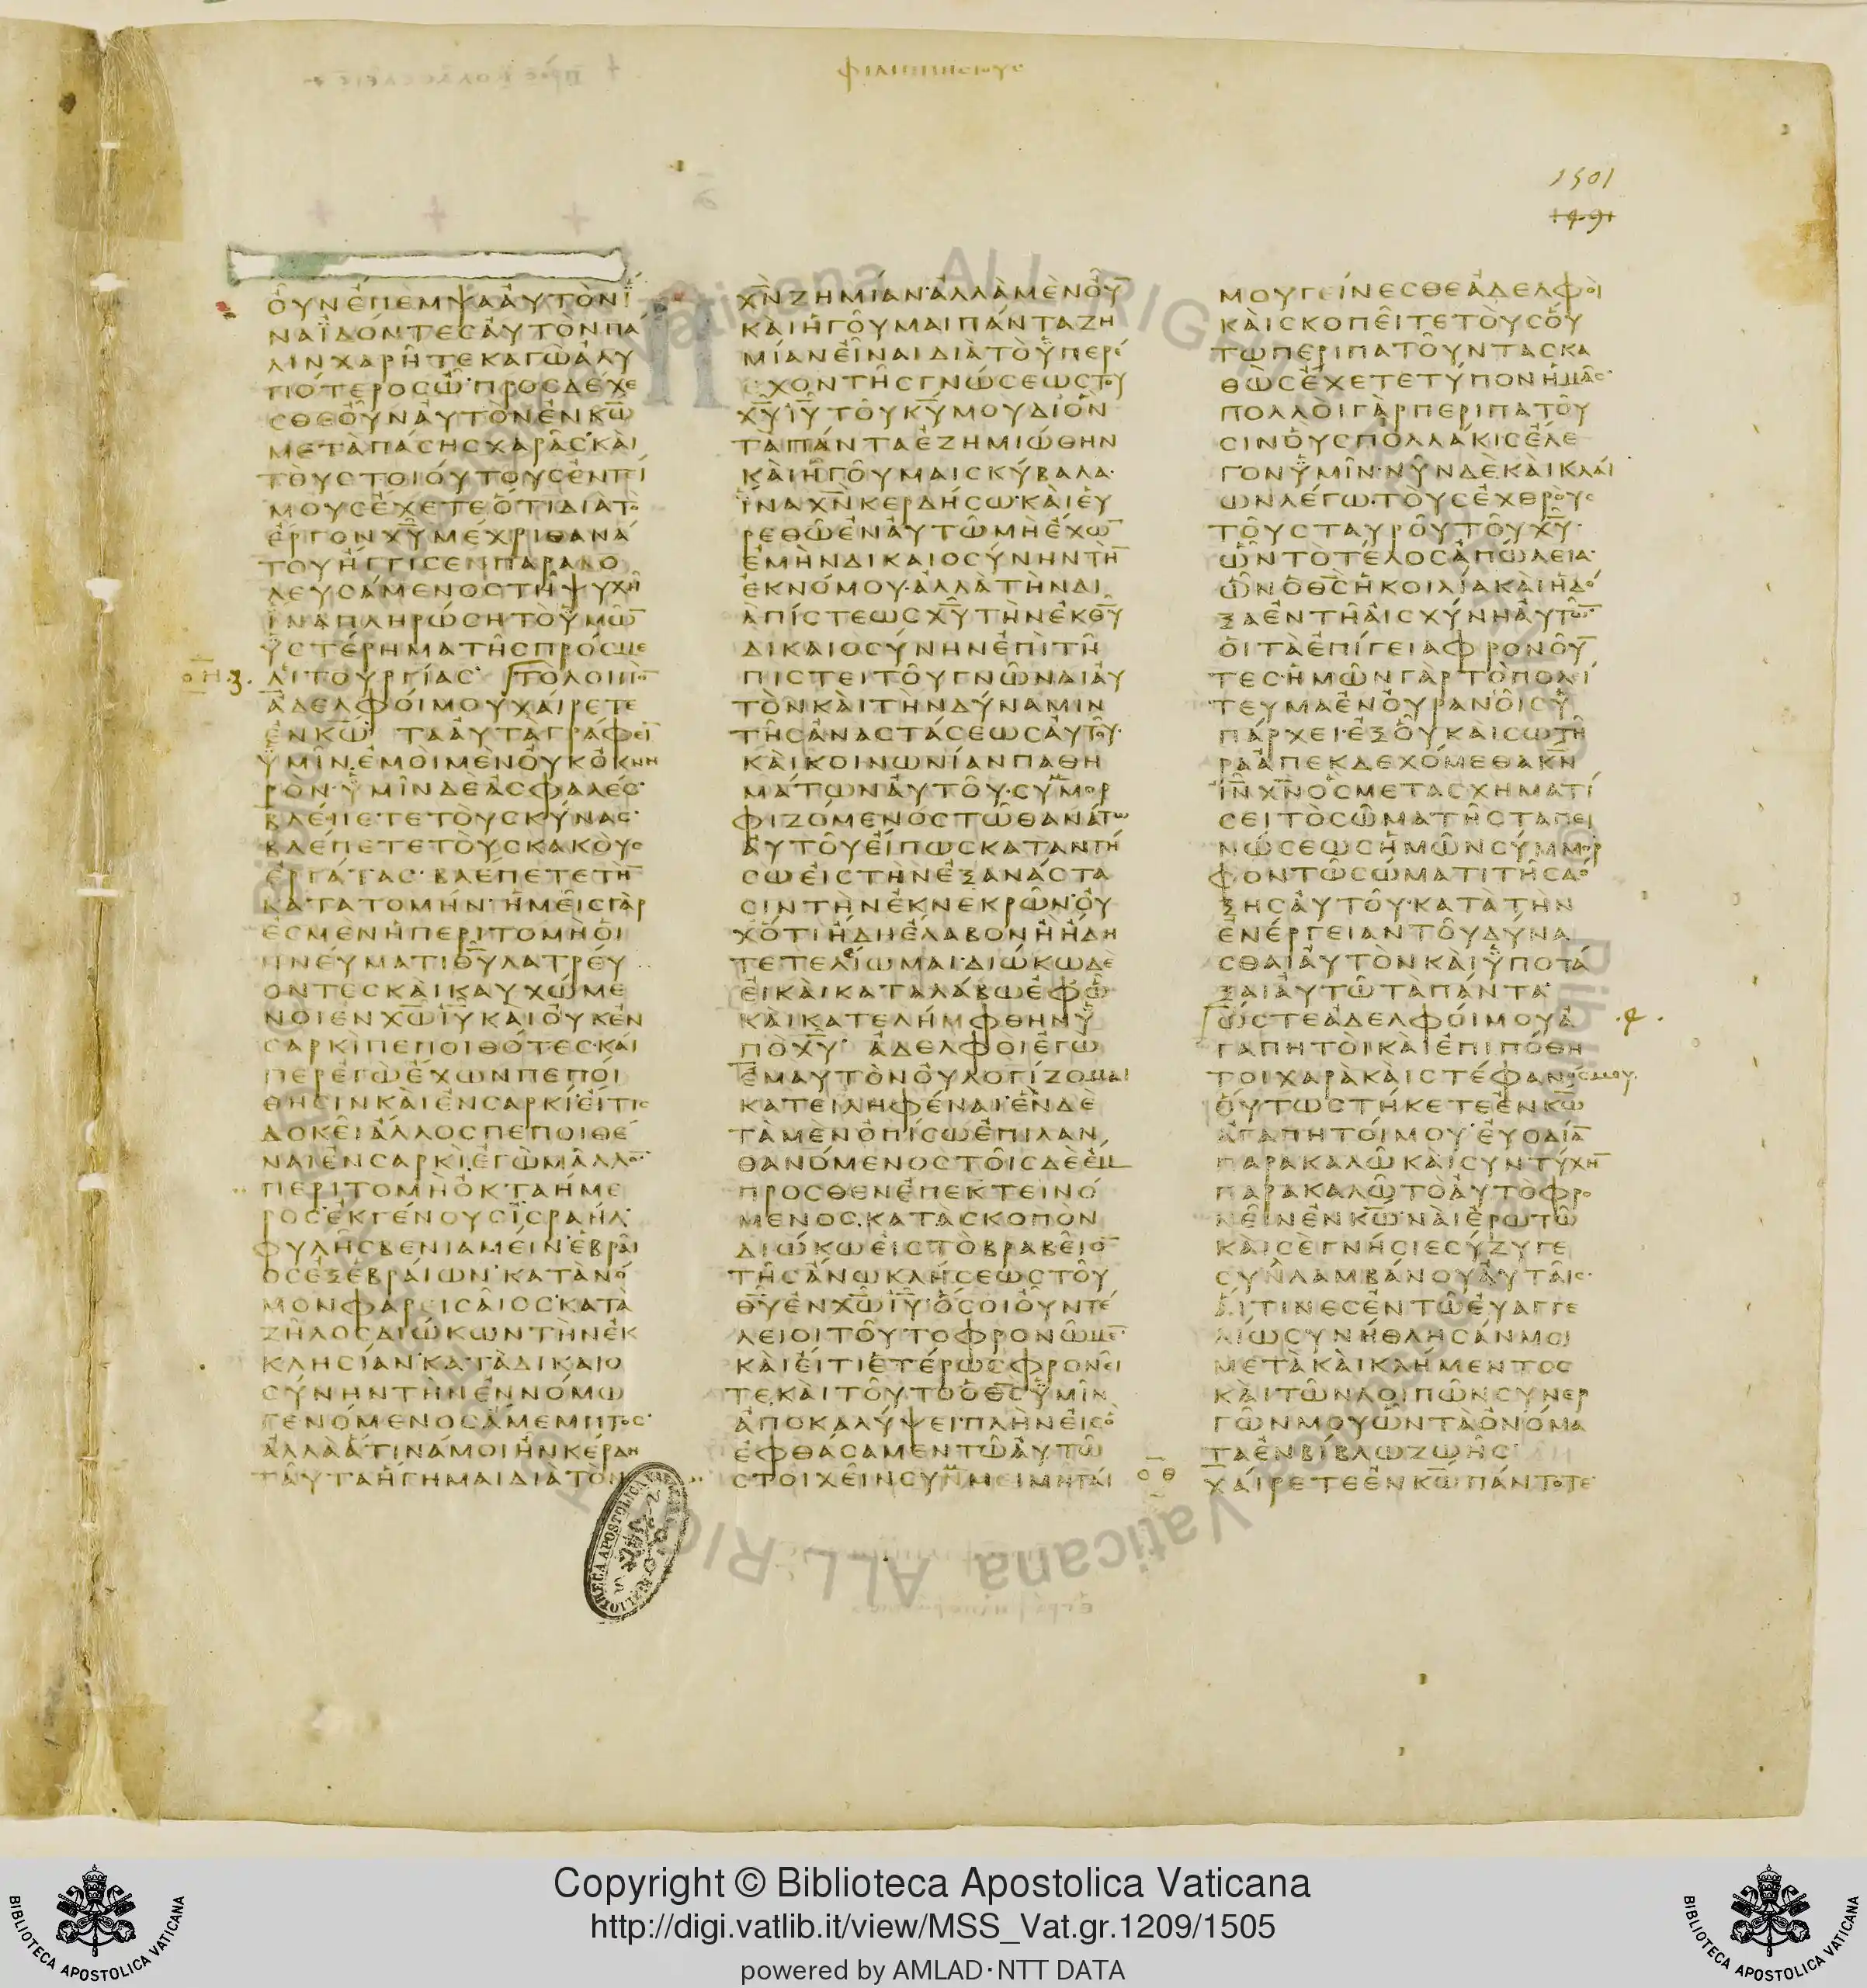 ΦΙΛΙΠΠΗΣΙΟΥΣ
1501
ΟΥΝΕΠΕΜΨΑΑΥΤΟΝΙ
ΝΑΪΔΟΝΤΕΣΑΥΤΟΝΠΑ
ΛΙΝΧΑΡΗΤΕΚΑΓΩΑΛΥ
ΠΟΤΕΡΟΣΩ·ΠΡΟΣΔΕΧΕ
ΣΘΕΟΥΝΑΥΤΟΝΕΝΚΩ
ΜΕΤΑΠΑΣΗΣΧΑΡΑΣ·ΚΑΙ
ΤΟΥΣΤΟΙΟΥΤΟΥΣΕΝΤΕΙ
ΜΟΥΣΕΧΕΤΕΟΤΙΔΙΑΤΟ
ΕΡΓΟΝΧΥΜΕΧΡΙΘΑΝΑ
ΤΟΥΗΓΓΙΣΕΝΠΑΡΑΒΟ
ΛΕΥΣΑΜΕΝΟΣΤΗΨΥΧΗ
ΙΝΑΠΛΗΡΩΣΗΤΟΥΜΩ̅
ΥΣΤΕΡΗΜΑΤΗΣΠΡΟΣΜΕ
ΛΙΤΟΥΡΓΙΑΣ· ΤΟΛΟΙΠΟ̅
ΑΔΕΛΦΟΙΜΟΥΧΑΙΡΕΤΕ
ΕΝΚΩ· ΤΑΑΥΤΑΓΡΑΦΕΙ̅
ΥΜΙΝ·ΕΜΟΙΜΕΝΟΥΚΟΚΝΗ
ΡΟΝ·ΥΜΙΝΔΕΑΣΦΑΛΕΣ·
ΒΛΕΠΕΤΕΤΟΥΣΚΥΝΑΣ·
ΒΛΕΠΕΤΕΤΟΥΣΚΑΚΟΥΣ
ΕΡΓΑΤΑΣ·ΒΛΕΠΕΤΕΤΗ̅
ΚΑΤΑΤΟΜΗΝ·ΗΜΕΙΣΓΑΡ
ΕΣΜΕΝΗΠΕΡΙΤΟΜΗΟΙ
ΠΝΕΥΜΑΤΙΘΥΛΑΤΡΕΥ
ΟΝΤΕΣΚΑΙΚΑΥΧΩΜΕ
ΝΟΙΕΝΧΩΙΥΚΑΙΟΥΚΕΝ
ΣΑΡΚΙΠΕΠΟΙΘΟΤΕΣ·ΚΑΙ
ΠΕΡΕΓΩΕΧΩΝΠΕΠΟΙ
ΘΗΣΙΝΚΑΙΕΝΣΑΡΚΙ·ΕΙΤΙΣ
ΔΟΚΕΙΑΛΛΟΣΠΕΠΟΙΘΕ
ΝΑΙΕΝΣΑΡΚΙ·ΕΓΩΜΑΛΛΟ̅·
ΠΕΡΙΤΟΜΗΟΚΤΑΗΜΕ
ΡΟΣ·ΕΚΓΕΝΟΥΣΙΣΡΑΗΛ·
ΦΥΛΗΣΒΕΝΙΑΜΕΙΝ·ΕΒΡΑΙ
ΟΣΕΞΕΒΡΑΙΩΝ·ΚΑΤΑΝΟ
ΜΟΝΦΑΡΕΙΣΑΙΟΣ·ΚΑΤΑ
ΖΗΛΟΣΔΙΩΚΩΝΤΗΝΕΚ
ΚΛΗΣΙΑΝ·ΚΑΤΑΔΙΚΑΙΟ
ΣΥΝΗΝΤΗΝΕΝΝΟΜΩ
ΓΕΝΟΜΕΝΟΣΑΜΕΜΠΤΟΣ·
ΑΛΛΑΑΤΙΝΑΜΟΙΗΝΚΕΡΔΗ
ΤΑΥΤΑΗΓΗΜΑΙΔΙΑΤΟΝ
ΧΝΖΗΜΙΑΝ·ΑΛΛΑΜΕΝΟΥ̅
ΚΑΙΗΓΟΥΜΑΙΠΑΝΤΑΖΗ
ΜΙΑΝΕΙΝΑΙΔΙΑΤΟΥΠΕΡΕ
ΧΟΝΤΗΣΓΝΩΣΕΩΣΤΟΥ
ΧΥΙΥΤΟΥΚΥΜΟΥΔΙΟΝ
ΤΑΠΑΝΤΑΕΖΗΜΙΩΘΗΝ
ΚΑΙΗΓΟΥΜΑΙΣΚΥΒΑΛΑ·
ΙΝΑΧΝΚΕΡΔΗΣΩ·ΚΑΙΕΥ
ΡΕΘΩΕΝΑΥΤΩΜΗΕΧΩ̅
ΕΜΗΝΔΙΚΑΙΟΣΥΝΗΝΤΗ̅
ΕΚΝΟΜΟΥ·ΑΛΛΑΤΗΝΔΙ
ΑΠΙΣΤΕΩΣΧΥΤΗΝΕΚΘΥ
ΔΙΚΑΙΟΣΥΝΗΝΕΠΙΤΗ
ΠΙΣΤΕΙΤΟΥΓΝΩΝΑΙΑΥ
ΤΟΝΚΑΙΤΗΝΔΥΝΑΜΙΝ
ΤΗΣΑΝΑΣΤΑΣΕΩΣΑΥΤΟΥ·
ΚΑΙΚΟΙΝΩΝΙΑΝΠΑΘΗ
ΜΑΤΩΝΑΥΤΟΥ·ΣΥΜΜΟΡ
ΦΙΖΟΜΕΝΟΣΤΩΘΑΝΑΤΩ
ΑΥΤΟΥΕΙΠΩΣΚΑΤΑΝΤΗ
ΣΩΕΙΣΤΗΝΕΞΑΝΑΣΤΑ
ΣΙΝΤΗΝΕΚΝΕΚΡΩΝ·ΟΥ
ΧΟΤΙΗΔΗΕΛΑΒΟΝΗΗΔΗ
ΤΕΤΕΛΕΙΩΜΑΙ·ΔΙΩΚΩΔΕ
ΕΙΚΑΙΚΑΤΑΛΑΒΩΕΦΩ
ΚΑΙΚΑΤΕΛΗΜΦΘΗΝΥ
ΠΟΧΥ· ΑΔΕΛΦΟΙΕΓΩ
ΕΜΑΥΤΟΝΟΥΛΟΓΙΖΟΜΑΙ
ΚΑΤΕΙΛΗΦΕΝΑΙ·ΕΝΔΕ
ΤΑΜΕΝΟΠΙΣΩΕΠΙΛΑΝ
ΘΑΝΟΜΕΝΟΣΤΟΙΣΔΕΕΜ
ΠΡΟΣΘΕΝΕΠΕΚΤΕΙΝΟ
ΜΕΝΟΣ·ΚΑΤΑΣΚΟΠΟΝ
ΔΙΩΚΩΕΙΣΤΟΒΡΑΒΕΙΟ̅
ΤΗΣΑΝΩΚΛΗΣΕΩΣΤΟΥ
ΘΥΕΝΧΩΙΥ·ΟΣΟΙΟΥΝΤΕ
ΛΕΙΟΙΤΟΥΤΟΦΡΟΝΩΜΕ̅·
ΚΑΙΕΙΤΙΕΤΕΡΩΣΦΡΟΝΕΙ
ΤΕ·ΚΑΙΤΟΥΤΟΟΘΣΥΜΙΝ
ΑΠΟΚΑΛΥΨΕΙ·ΠΛΗΝΕΙΣΟ
ΕΦΘΑΣΑΜΕΝΤΩΑΥΤΩ
ΣΤΟΙΧΕΙΝΣΥΝΜΕΙΜΗΤΑΙ
ΜΟΥΓΕΙΝΕΣΘΕΑΔΕΛΦΟΙ
ΚΑΙΣΚΟΠΕΙΤΕΤΟΥΣΟΥ
ΤΩΠΕΡΙΠΑΤΟΥΝΤΑΣΚΑ
ΘΩΣΕΧΕΤΕΤΥΠΟΝΗΜΑΣ·
ΠΟΛΛΟΙΓΑΡΠΕΡΙΠΑΤΟΥ
ΣΙΝΟΥΣΠΟΛΛΑΚΙΣΕΛΕ
ΓΟΝΥΜΙΝ·ΝΥΝΔΕΚΑΙΚΛΑΙ
ΩΝΛΕΓΩ·ΤΟΥΣΕΧΘΡΟΥΣ
ΤΟΥΣΤΑΥΡΟΥΤΟΥΧΥ·
ΩΝΤΟΤΕΛΟΣΑΠΩΛΕΙΑ·
ΩΝΟΘΣΗΚΟΙΛΙΑΚΑΙΗΔΟ
ΞΑΕΝΤΗΑΙΣΧΥΝΗΑΥΤΩ̅
ΟΙΤΑΕΠΙΓΕΙΑΦΡΟΝΟΥ̅
ΤΕΣ·ΗΜΩΝΓΑΡΤΟΠΟΛΙ
ΤΕΥΜΑΕΝΟΥΡΑΝΟΙΣΥ
ΠΑΡΧΕΙ·ΕΞΟΥΚΑΙΣΩΤΗ
ΡΑΑΠΕΚΔΕΧΟΜΕΘΑΚΝ
ΙΝΧΝΟΣΜΕΤΑΣΧΗΜΑΤΙ
ΣΕΙΤΟΣΩΜΑΤΗΣΤΑΠΕΙ
ΝΩΣΕΩΣΗΜΩΝΣΥΜΜΟΡ
ΦΟΝΤΩΣΩΜΑΤΙΤΗΣΔΟ
ΞΗΣΑΥΤΟΥ·ΚΑΤΑΤΗΝ
ΕΝΕΡΓΕΙΑΝΤΟΥΔΥΝΑ
ΣΘΑΙΑΥΤΟΝΚΑΙΥΠΟΤΑ
ΞΑΙΑΥΤΩΤΑΠΑΝΤΑ·
ΩΣΤΕΑΔΕΛΦΟΙΜΟΥΑ
ΓΑΠΗΤΟΙΚΑΙΕΠΙΠΟΘΗ
ΤΟΙΧΑΡΑΚΑΙΣΤΕΦΑΝΟΣΜΟΥ·
ΟΥΤΩΣΤΗΚΕΤΕΕΝΚΩ
ΑΓΑΠΗΤΟΙΜΟΥ·ΕΥΟΔΙΑ̅
ΠΑΡΑΚΑΛΩΚΑΙΣΥΝΤΥΧΗ̅
ΠΑΡΑΚΑΛΩΤΟΑΥΤΟΦΡΟ
ΝΕΙΝΕΝΚΩ·ΝΑΙΕΡΩΤΩ
ΚΑΙΣΕΓΝΗΣΙΕΣΥΖΥΓΕ
ΣΥΝΛΑΜΒΑΝΟΥΑΥΤΑΙΣ·
ΑΙΤΙΝΕΣΕΝΤΩΕΥΑΓΓΕ
ΛΙΩΣΥΝΗΘΛΗΣΑΝΜΟΙ
ΜΕΤΑΚΑΙΚΛΗΜΕΝΤΟΣ
ΚΑΙΤΩΝΛΟΙΠΩΝΣΥΝΕΡ
ΓΩΝΜΟΥΩΝΤΑΟΝΟΜΑ
ΤΑΕΝΒΙΒΛΩΖΩΗΣ
ΧΑΙΡΕΤΕΕΝΚΩΠΑΝΤΟΤΕ·
Copyright © Biblioteca Apostolica Vaticana
http://digi.vatlib.it/view/MSS_Vat.gr.1209/1505
powered by AMLAD·NTT DATA
BIBLIOTECA APOSTOLICA VATICANA
BIBLIOTECA APOSTOLICA VATICANA